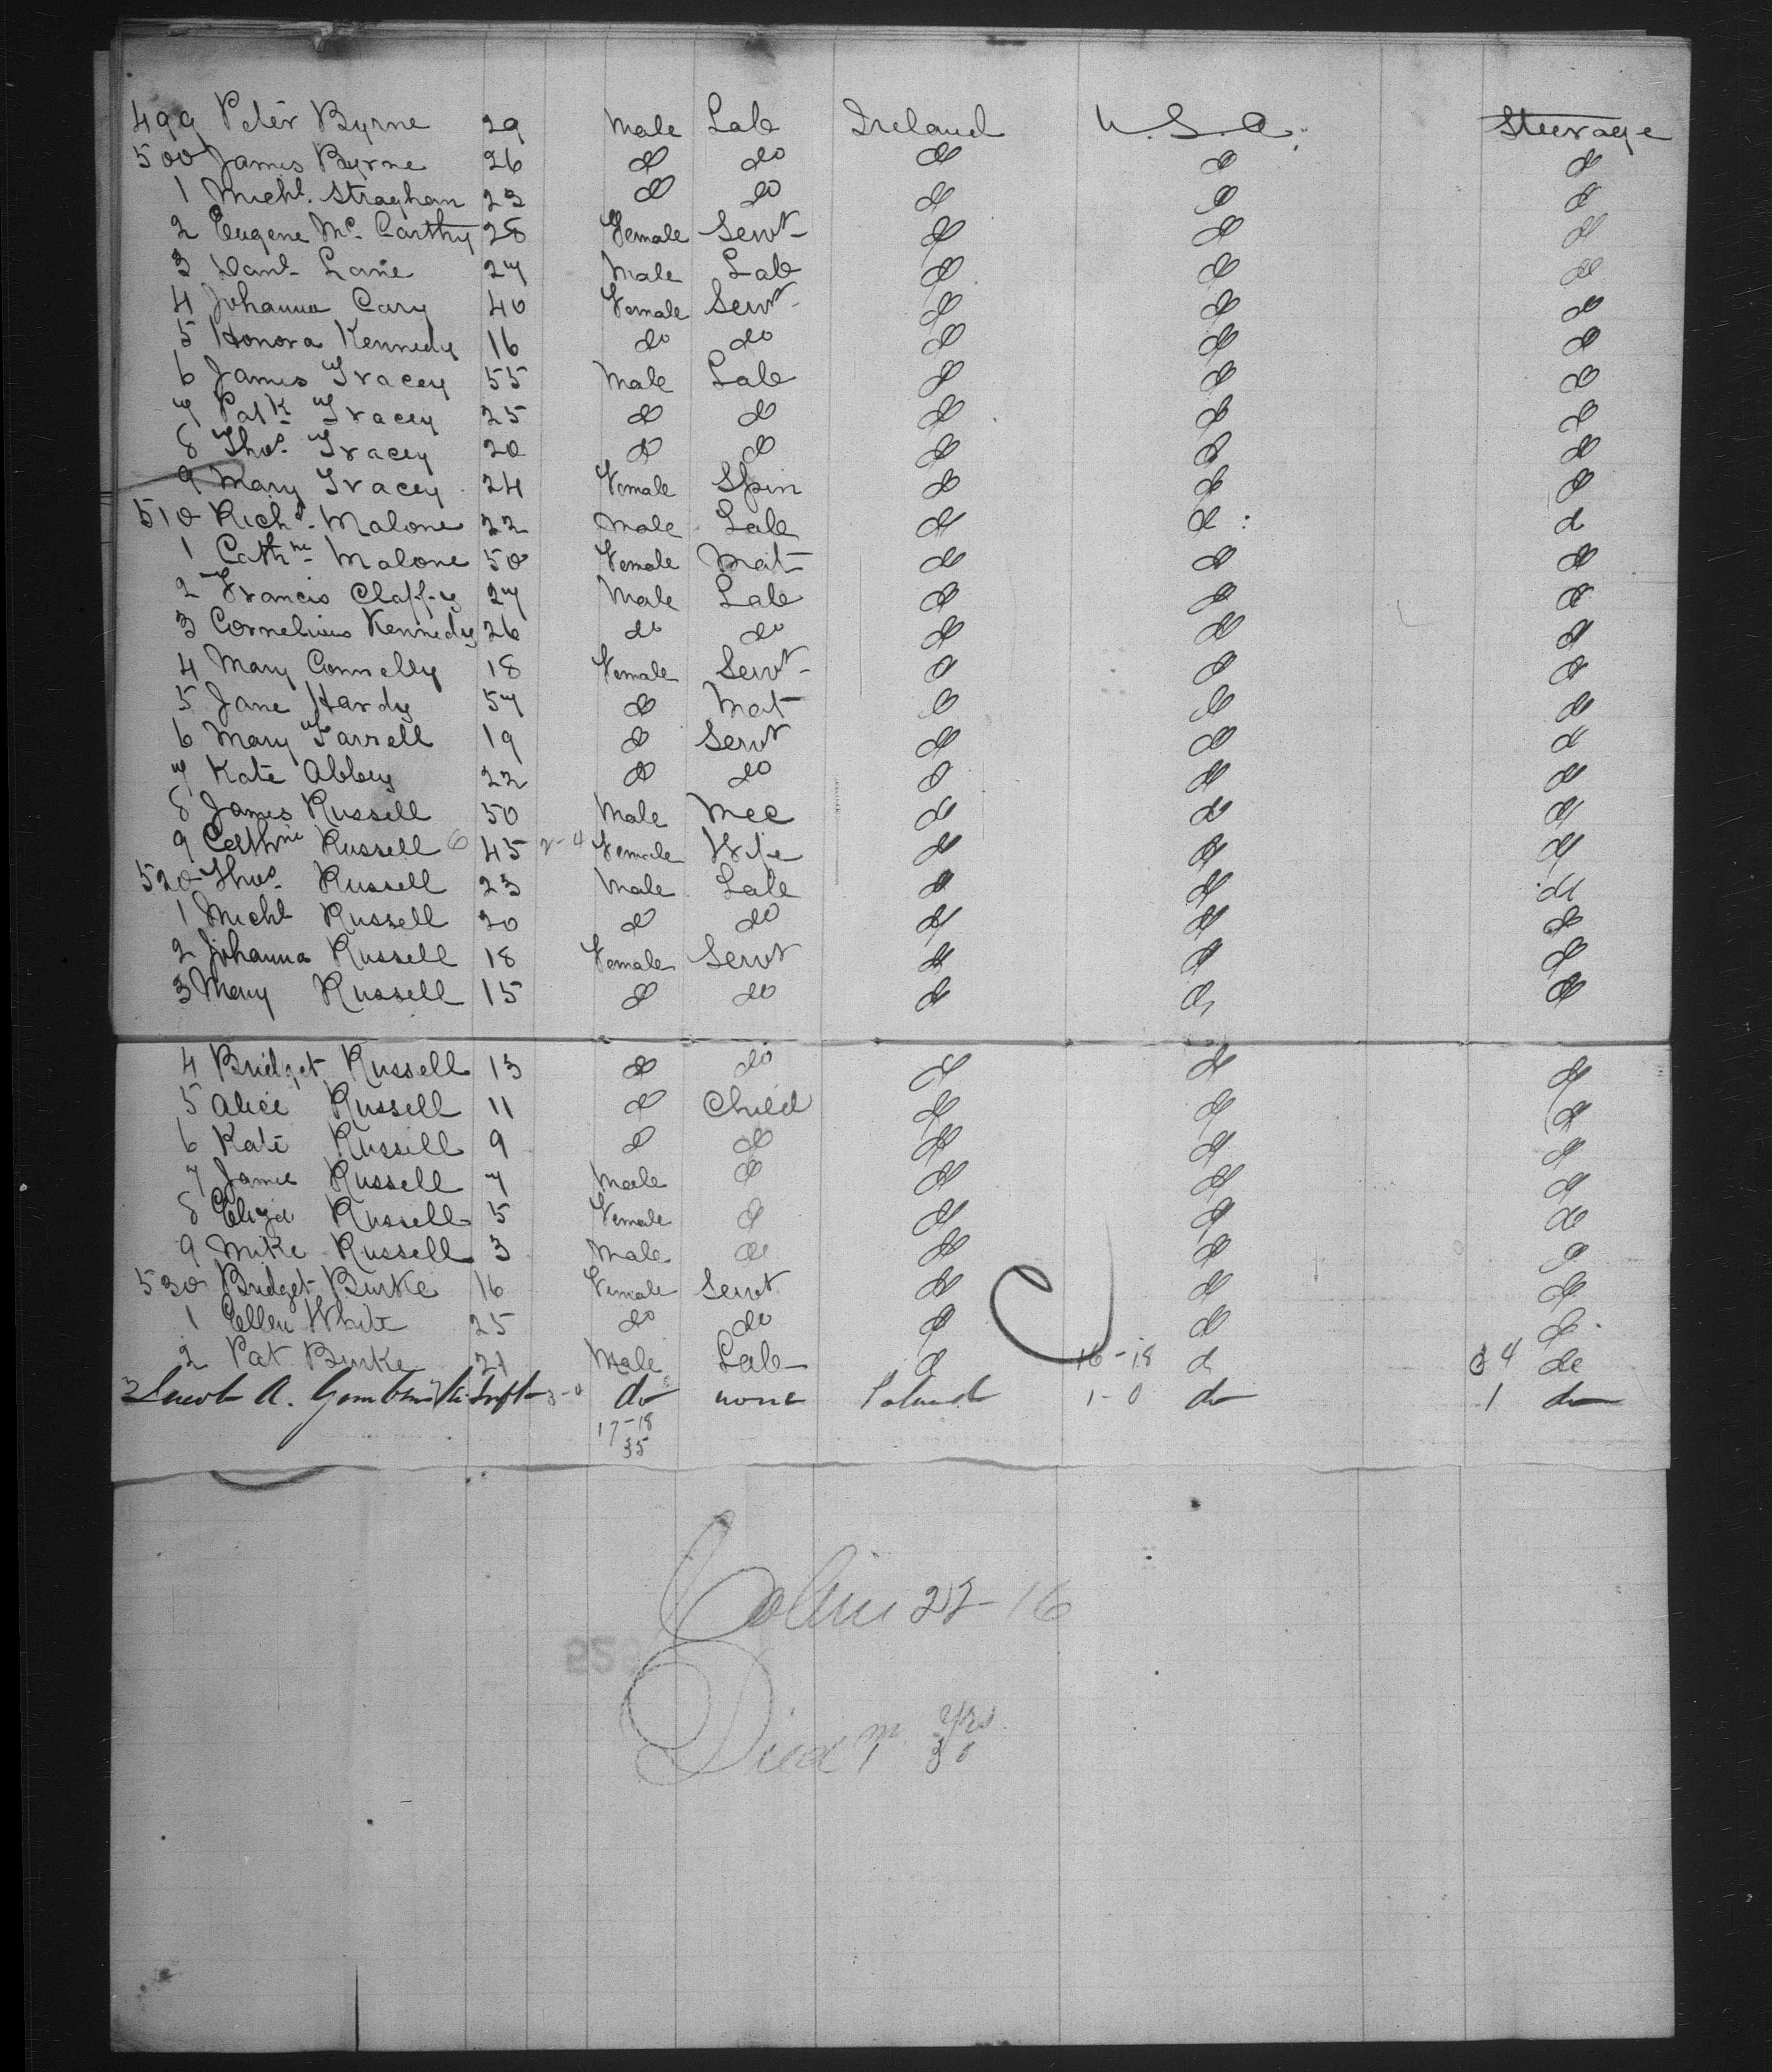 499 Peter Byrne 29 Male Lab Ireland U.S.A. Steerage
500 James Byrne 26 do do do do do
1 Michl. Straghan 23 do do do do do
2 Eugene Mc. Carthy 28 Female Servt do do do
3 Danl Lane 27 Male Lab do do do
4 Johanna Cary 40 Female Servt do do do
5 Honora Kennedy 16 do do do do do
6 James Tracey 55 Male Lab do do do
7 Patk Tracey 25 do do do do do
8 Thos. Tracey 20 do do do do do
9 Mary Tracey 24 Female Spin do do do
510 Richd. Malone 22 Male Lab do do do
1 Cathne Malone 50 Female Mat do do do
2 Francis Claffey 27 Male Lab do do do
3 Cornelius Kennedy 26 do do do do do
4 Mary Connelly 18 Female Servt do do do
5 Jane Hardy 57 do Mat do do do
6 Mary Farrell 19 do Servt do do do
7 Kate Abbey 22 do do do do do
8 James Russell 50 Male Mec do do do
9 Cathrne Russell 6 45 2-4 Female Wife do do do
520 Thos. Russell 23 Male Lab do do do
1 Michl Russell 20 do do do do do
2 Johanna Russell 18 Female Servt do do do
3 Mary Russell 15 do do do do do
4 Bridget Russell 13 do do do do do
5 Alice Russell 11 do Child do do do
6 Kate Russell 9 do do do do do
7 James Russell 7 Male do do do do
8 Eliza Russell 5 Female do do do do
9 Mike Russell 3 Male do do do do
530 Bridget Burke 16 Female Servt do do do
1 Ellen White 25 do do do do do
2 Pat Burke 21 Male Lab do 16-18 do 34 do
3 A. Inft 3-0 do none Poland 1-0 do 1 do
17-18
35
22-16
Died m yrs
1 30